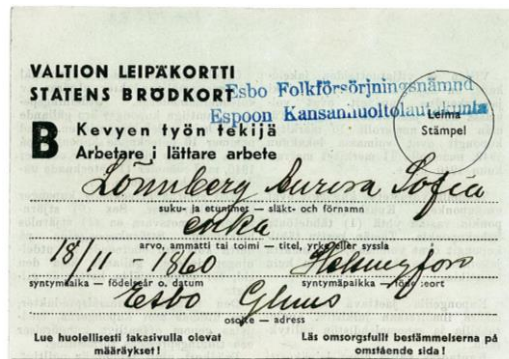 VALTION LEIPÄKORTTI
STATENS BRÖDKORT
Esbo Folkförsörjningsnämnd
Espoon Kansanhuoltolautakunta
Leima
Stämpel
B
Kevyen työn tekijä
Arbetare i lättare arbete
Lönnberg Aurora Sofia
suku- ja etunimet — släkt- och förnamn
änka
arvo, ammatti tai toimi — titel, yrke eller syssla
18/11 - 1860 Helsingfors
syntymäaika — födelseår o. datum syntymäpaikka — födelseort
Esbo
osoite — adress
Lue huolellisesti takasivulla olevat
määräykset!
Läs omsorgsfullt bestämmelserna på
omstående sida!